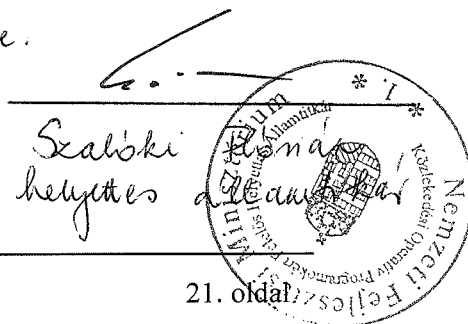 e.
Szalóki Flórián
helyettes államtitkár
21. oldal
* 1. *
Nemzeti Fejlesztési Minisztérium
Közlekedési Operatív Programokért Felelős Helyettes Államtitkár